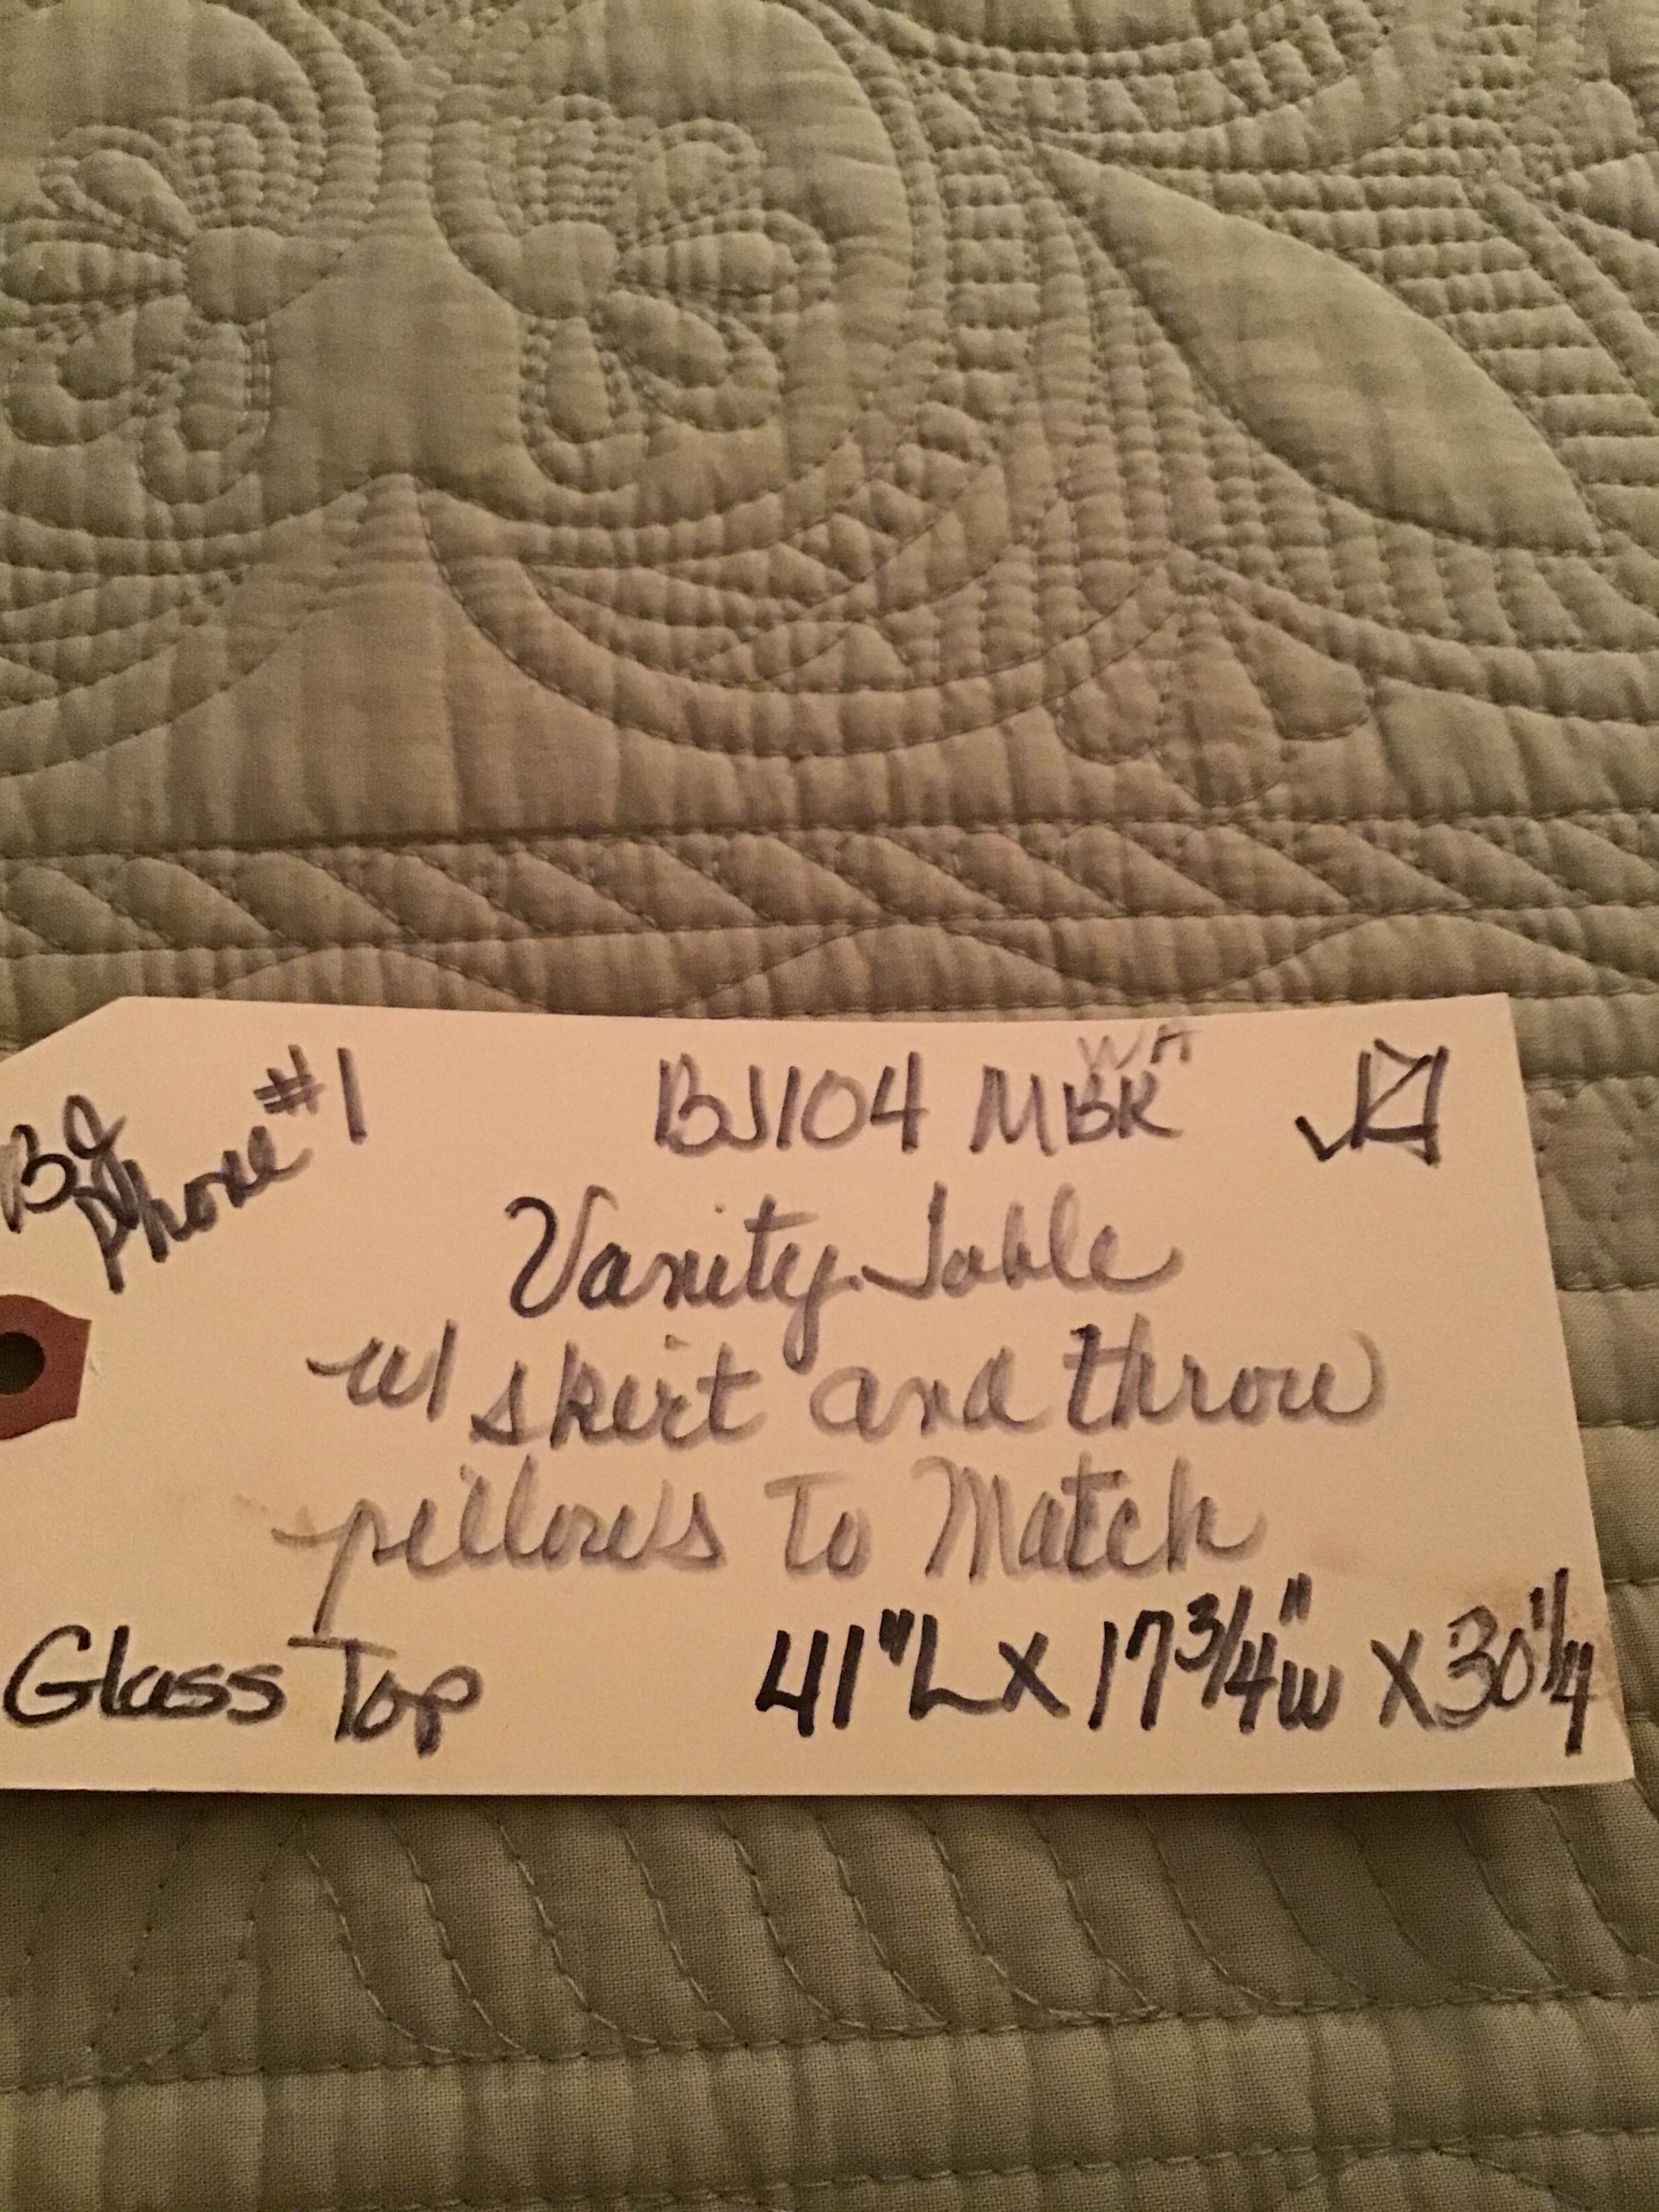 BJ Phone #1
BJ104 MBR WA
Vanity Table
w/ skirt and throw
pillows To Match
Glass Top 41"L X 17 3/4" W X 30 1/4